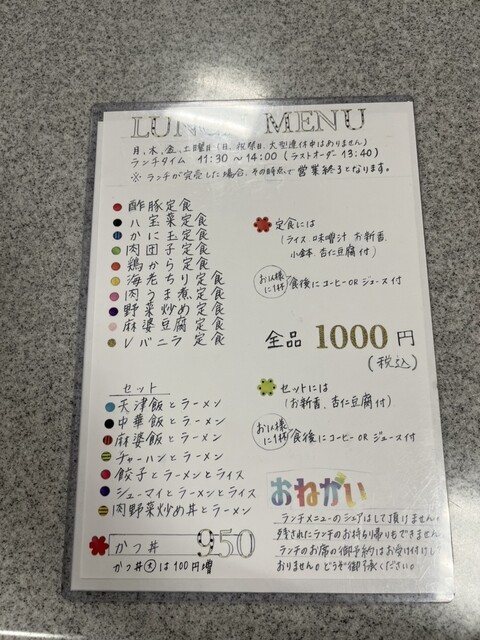 LUNCH MENU
月、木、金、土曜日(日、祝祭日、大型連休中はありません)
ランチタイム 11:30〜14:00 (ラストオーダー 13:40)
※ ランチが完売した場合、その時点で営業終了となります。
酢豚定食
八宝菜定食
かに玉定食
肉団子定食
鶏から定食
海老ちり定食
肉うま煮定食
野菜炒め定食
麻婆豆腐定食
レバニラ定食
定食には
(ライス、味噌汁 お新香、
小鉢、杏仁豆腐付)
お1人様に1杯 食後にコーヒー OR ジュース付
全品 1000円
(税込)
セット
天津飯とラーメン
中華飯とラーメン
麻婆飯とラーメン
チャーハンとラーメン
餃子とラーメンとライス
シューマイとラーメンとライス
肉野菜炒め丼とラーメン
セットには
(お新香、杏仁豆腐付)
お1人様に1杯 食後にコーヒー OR ジュース付
かつ丼 950
かつ丼(大)は100円増
おねがい
ランチメニューのシェアはして頂けません。
残されたランチのお持ち帰りもできません。
ランチのお席の御予約はお受け付けし
おりません。どうぞ御了承ください。